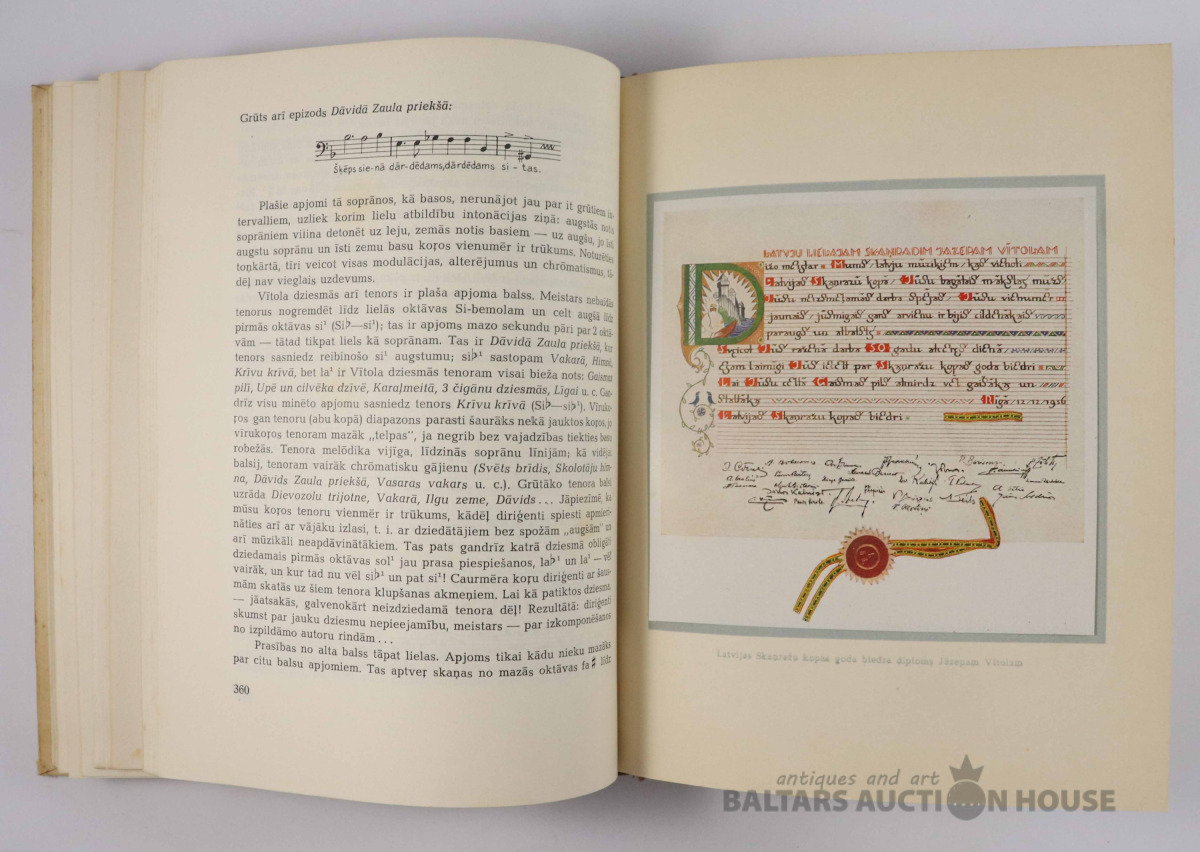 Grūts arī epizods Dāvidā Zaula priekšā:
Šķēps sie-nā dār-dēdams, dārdēdams si-tas.
Plašie apjomi tā soprānos, kā basos, nerunājot jau par it grūtiem in-
tervalliem, uzliek korim lielu atbildību intonācijas ziņā: augstās notis
soprāniem vilina detonēt uz leju, zemās notis basiem — uz augšu, jo īsti
augstu soprānu un īsti zemu basu koŗos vienumēr ir trūkums. Noturēties
toņkārtā, tīri veicot visas modulācijas, alterējumus un chrōmatismus, tā-
dēļ nav vieglais uzdevums.
Vītola dziesmās arī tenors ir plaša apjoma balss. Meistars nebaidās
tenorus nogremdēt līdz lielās oktāvas Si-bemolam un celt augšā līdz
pirmās oktāvas si¹ (Si♭—si¹); tas ir apjoms mazo sekundu pāri par 2 oktā-
vām — tātad tikpat liels kā soprānam. Tas ir Dāvidā Zaula priekšā, kur
tenors sasniedz reibinošo si¹ augstumu; si♭¹ sastopam Vakarā, Himnē,
Krīvu krīvā, bet la¹ ir Vītola dziesmās tenoram visai bieža nots: Gaismas
pilī, Upē un cilvēka dzīvē, Karaļmeitā, 3 čigānu dziesmās, Līgai u. c. Gan-
drīz visu minēto apjomu sasniedz tenors Krīvu krīvā (Si♭—si♭¹). Vīru-
koŗos gan tenoru (abu kopā) diapazons parasti šaurāks nekā jauktos koŗos, jo
vīrukoŗos tenoram mazāk „telpas", ja negrib bez vajadzības tiekties basu
robežās. Tenora melōdika vijīga, līdzinās soprānu līnijam; kā vidējai
balsij, tenoram vairāk chrōmatisku gājienu (Svēts brīdis, Skolotāju him-
na, Dāvids Zaula priekšā, Vasaras vakars u. c.). Grūtāko tenora balsi
uzrāda Dievozolu trijotne, Vakarā, Ilgu zeme, Dāvids . . . Jāpiezīmē, ka
mūsu koŗos tenoru vienmēr ir trūkums, kādēļ diriģenti spiesti apmieri-
nāties arī ar vājāku izlasi, t. i. ar dziedātājiem bez spožām „augšām" un
arī mūzikāli neapdāvinātākiem. Tas pats gandrīz katrā dziesmā obligāti
dziedamais pirmās oktāvas sol¹ jau prasa piespiešanos, la♭¹ un la¹ — vēl
vairāk, un kur tad nu vēl si♭¹ un pat si¹! Caurmēra koŗu diriģenti ar šau-
smām skatās uz šiem tenora klupšanas akmeņiem. Lai kā patiktos dziesma,
— jāatsakās, galvenokārt neizdziedamā tenora dēļ! Rezultātā: diriģenti
skumst par jauku dziesmu nepieejamību, meistars — par izkomponēšanos
no izpildāmo autoru rindām . . .
Prasības no alta balss tāpat lielas. Apjoms tikai kādu nieku mazāks
par citu balsu apjomiem. Tas aptveŗ skaņas no mazās oktāvas fa♯ līdz
360
LATVJU LIELAJAM SKAŅRADIM JAZEPAM VĪTOLAM
Rīgā 12.12.1936
Latvijas Skaņražu kopas biedri
Latvijas Skaņražu kopas goda biedra diploms Jāzepam Vītolam
antiques and art
BALTARS AUCTION HOUSE